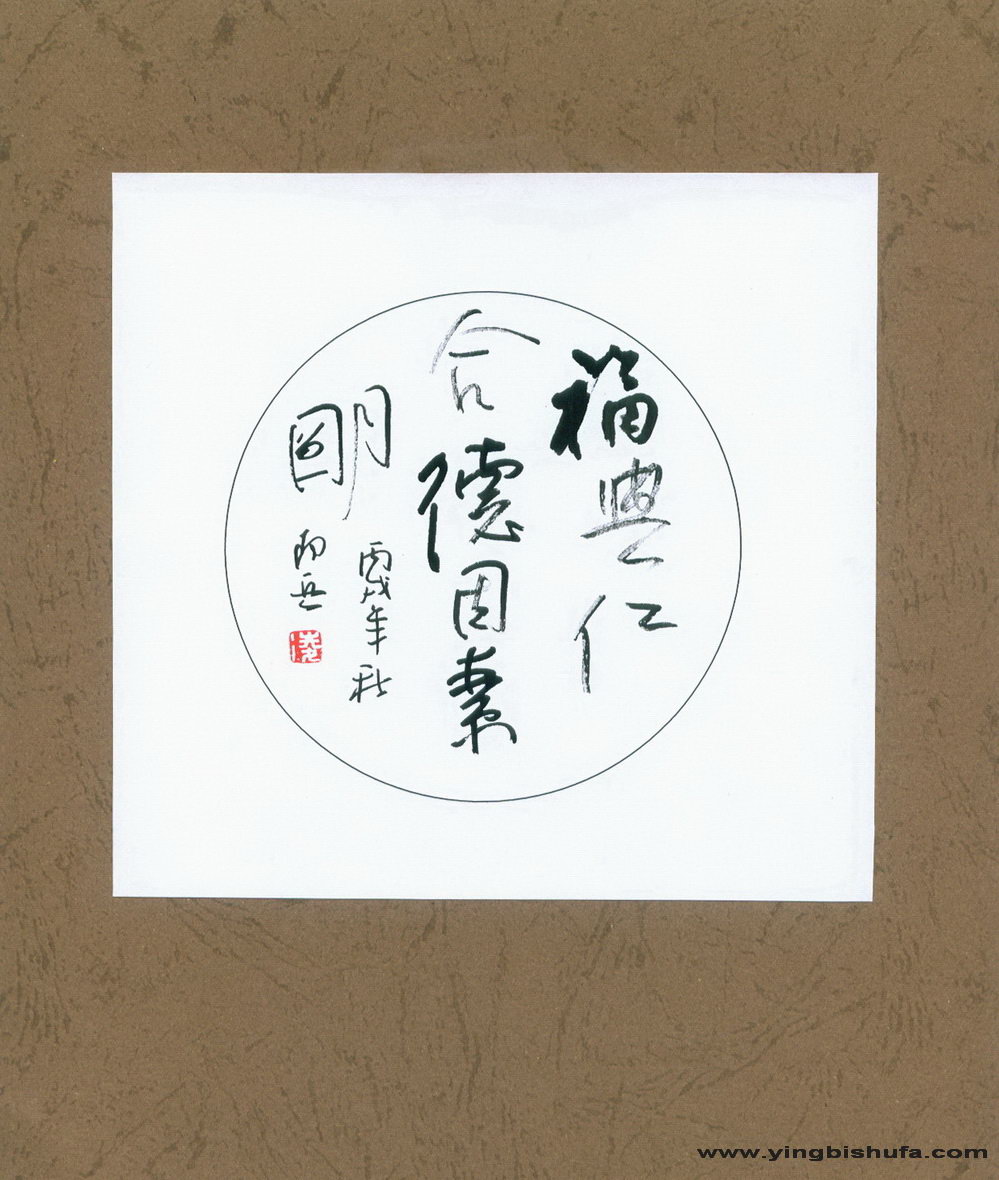 福與仁
合德因
明
丙戌年秋
www.yingbishufa.com